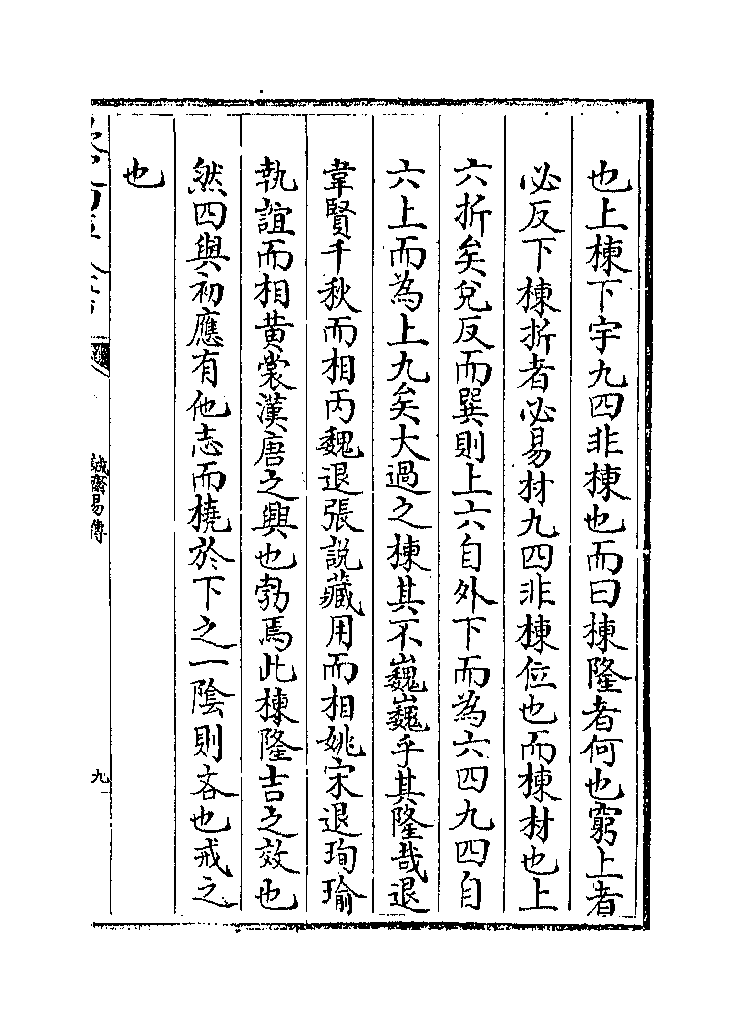 也上棟下宇九四非棟也而曰棟隆者何也窮上者
必反下棟折者必易材九四非棟位也而棟材也上
六折矣兌反而巽則上六自外下而為六四九四自
六上而為上九矣大過之棟其不巍巍乎其隆哉退
韋賢千秋而相丙魏退張説藏用而相姚宋退珣瑜
執誼而相黄裳漢唐之興也勃焉此棟隆吉之效也
然四與初應有他志而橈於下之一隂則吝也戒之
也
誠齋易傳
九